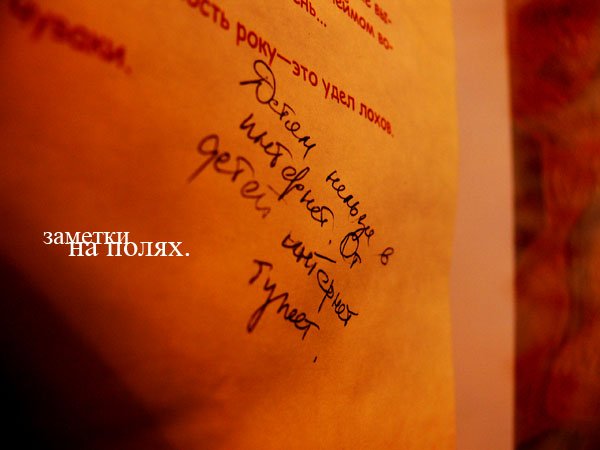 нь...
ость року—это удел лохов.
Детям нельзя в
интернет. От
детей интернет
тупеет.
заметки
на полях.